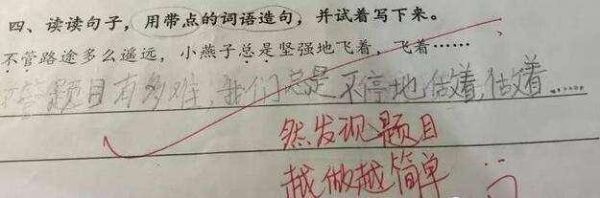 四、读读句子，用带点的词语造句，并试着写下来。
不管路途多么遥远，小燕子总是坚强地飞着，飞着……
不管题目有多难，我们总是不停地做着，做着……
然发现题目
越做越简单